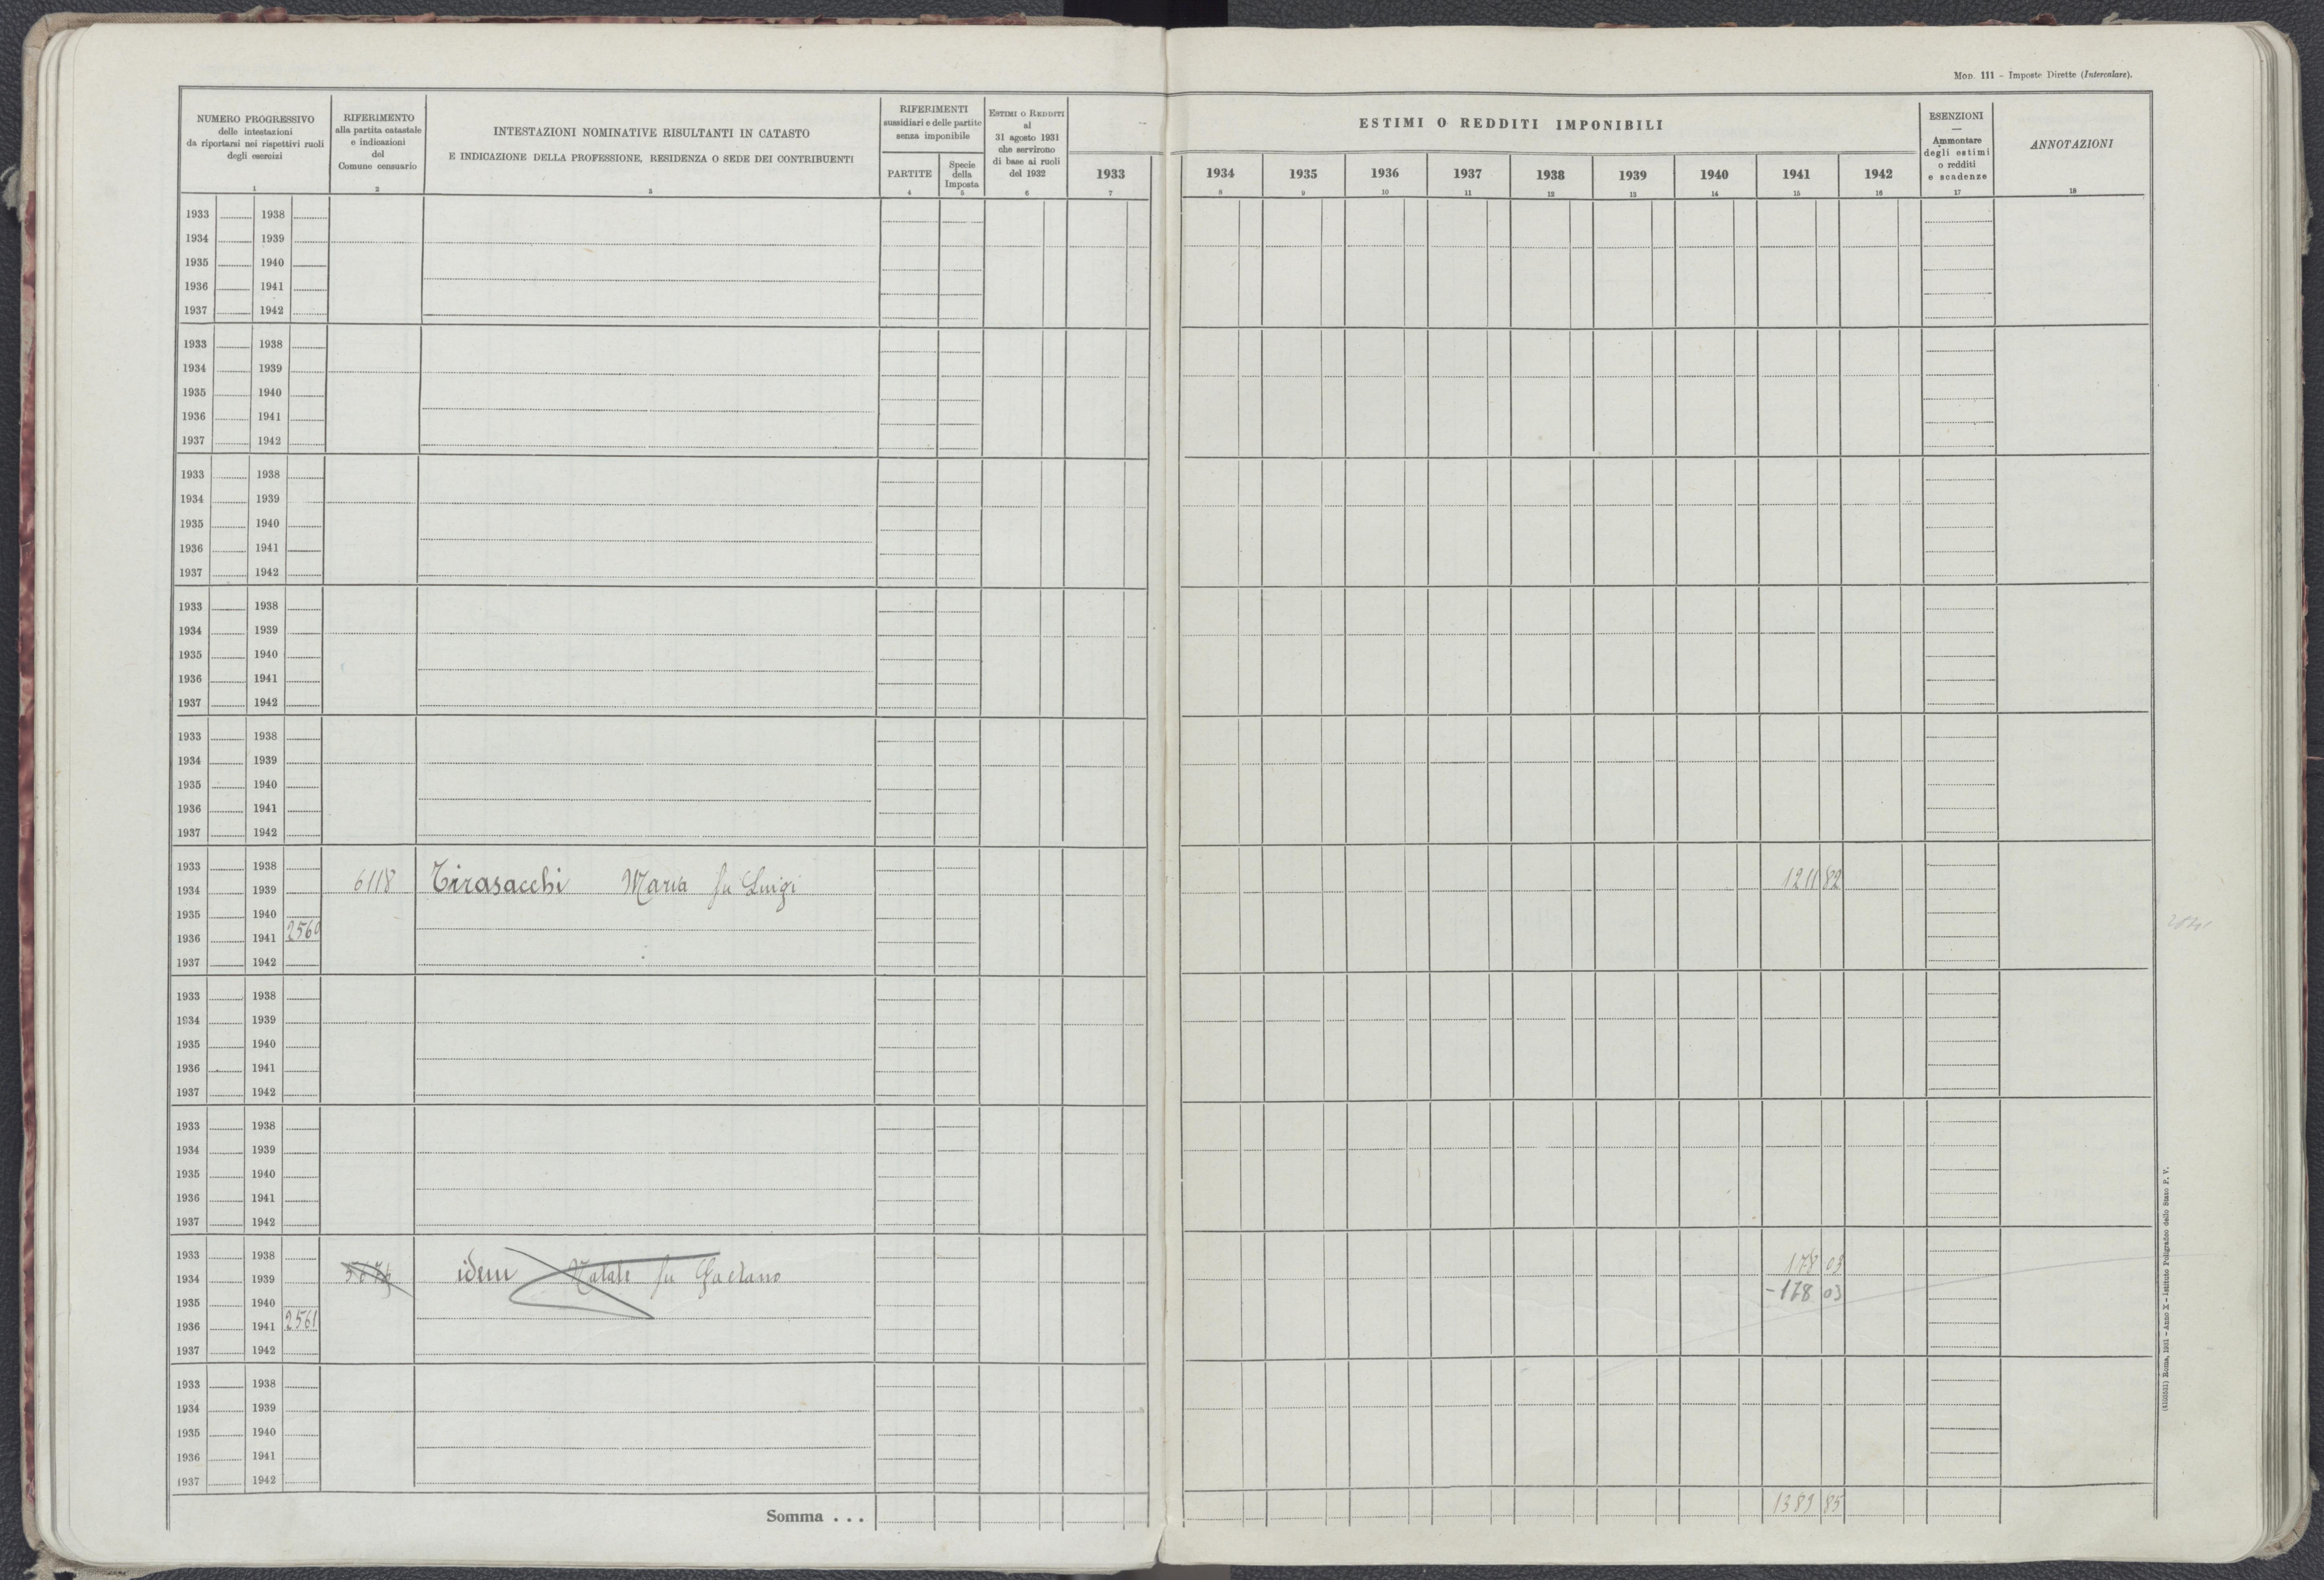 Mod. 111 – Imposte Dirette (Intercalare).
NUMERO PROGRESSIVO
delle intestazioni
da riportarsi nei rispettivi ruoli
degli esercizi
1
RIFERIMENTO
alla partita catastale
e indicazioni
del
Comune censuario
2
INTESTAZIONI NOMINATIVE RISULTANTI IN CATASTO
E INDICAZIONE DELLA PROFESSIONE, RESIDENZA O SEDE DEI CONTRIBUENTI
3
RIFERIMENTI
sussidiari e delle partite
senza imponibile
PARTITE
4
Specie
della
Imposta
5
ESTIMI O REDDITI
al
31 agosto 1931
che servirono
di base ai ruoli
del 1932
6
ESTIMI O REDDITI IMPONIBILI
1933 1934 1935 1936 1937 1938 1939 1940 1941 1942
7 8 9 10 11 12 13 14 15 16
ESENZIONI
—
Ammontare
degli estimi
o redditi
e scadenze
17
ANNOTAZIONI
18
1933 1938
1934 1939
1935 1940
1936 1941
1937 1942
1933 1938
1934 1939
1935 1940
1936 1941
1937 1942
1933 1938
1934 1939
1935 1940
1936 1941
1937 1942
1933 1938
1934 1939
1935 1940
1936 1941
1937 1942
1933 1938
1934 1939
1935 1940
1936 1941
1937 1942
1933 1938
1934 1939 6118 Tirasacchi Maria fu Luigi 1211 82
1935 1940
1936 1941 2560
1937 1942
1933 1938
1934 1939
1935 1940
1936 1941
1937 1942
1933 1938
1934 1939
1935 1940
1936 1941
1937 1942
1933 1938
1934 1939 idem Natale fu Gaetano 178 03
1935 1940 -178 03
1936 1941 2561
1937 1942
1933 1938
1934 1939
1935 1940
1936 1941
1937 1942
Somma . . . 1389 85
(4105531) Roma, 1931 – Anno X – Istituto Poligrafico dello Stato P. V.